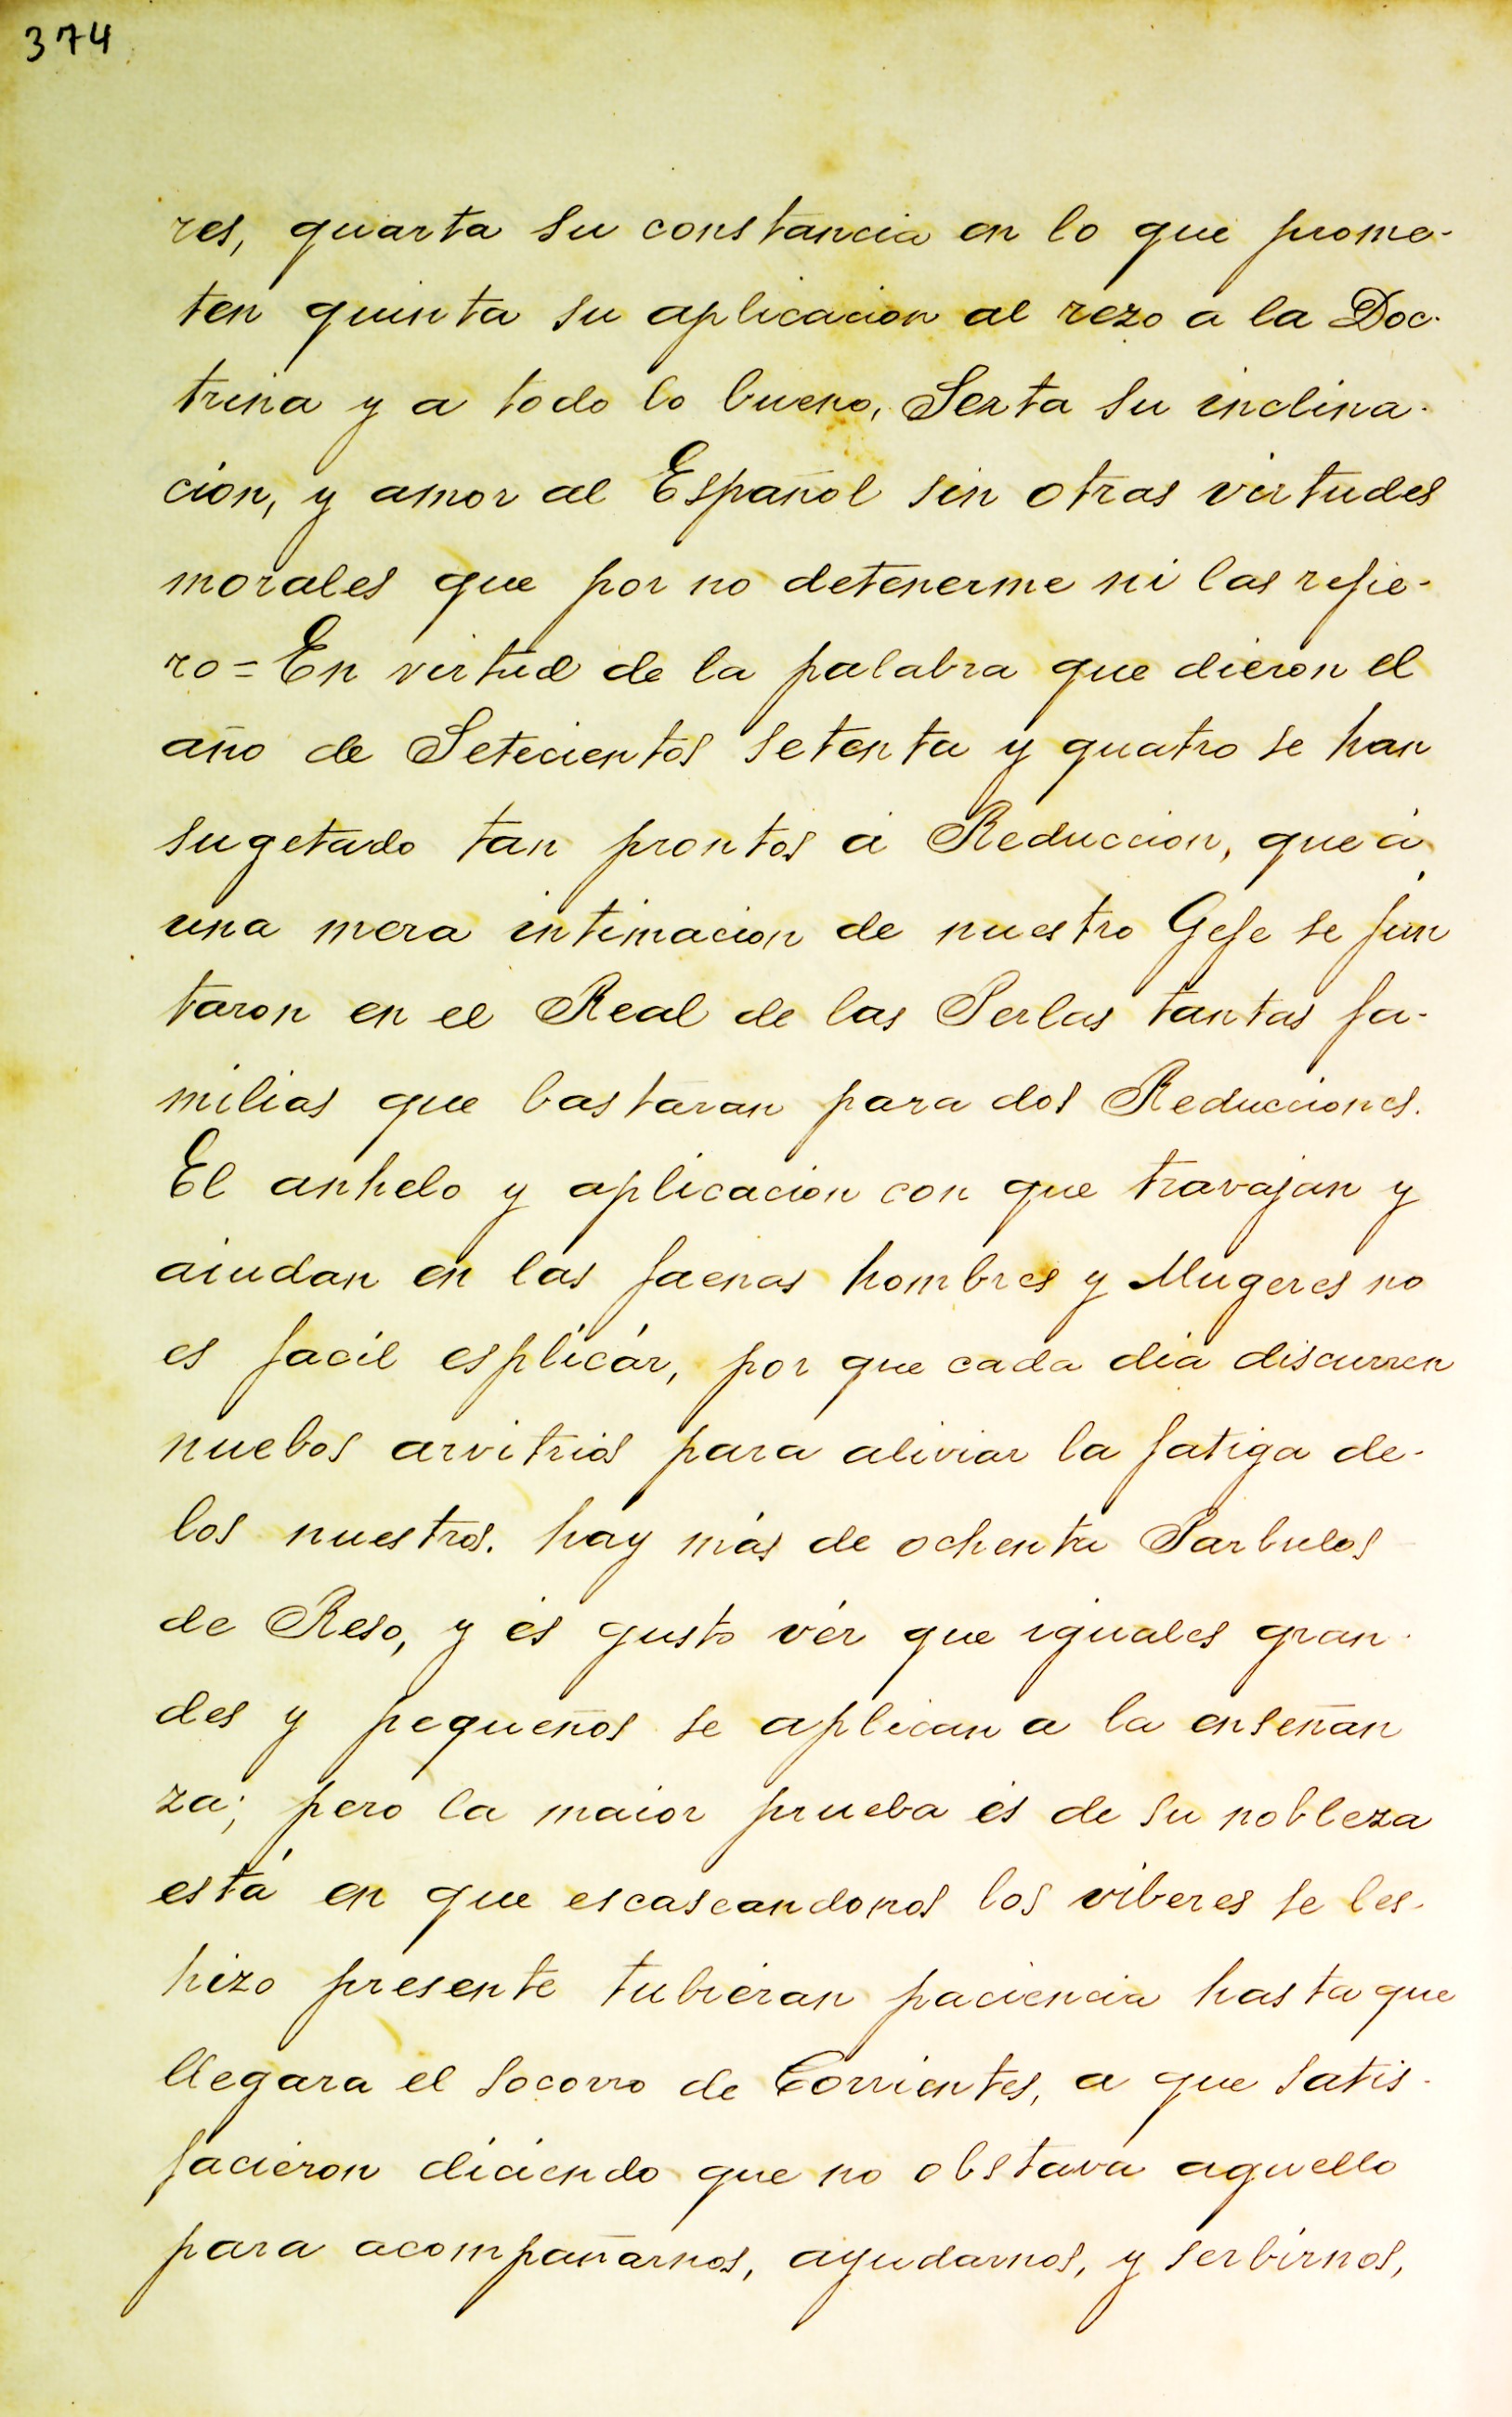 374
res, quarta su constancia en lo que prome-
ten quinta su aplicacion al rezo a la Doc-
trina y a todo lo bueno, Sexta su inclina-
cion, y amor al Español sin otras virtudes
morales que por no detenerme ni las refie-
ro = En virtud de la palabra que dieron el
año de Setecientos setenta y quatro se han
sugetado tan prontos á Reduccion, que á
una mera intimacion de nuestro Gefe se jun
taron en el Real de las Perlas tantas fa-
milias que bastaran para dos Reducciones.
El anhelo y aplicacion con que travajan y
aiudan en las faenas hombres y Mugeres no
es facil esplicár, por que cada dia discurren
nuebos arvitrios para aliviar la fatiga de-
los nuestros. hay más de ochenta Parbulos
de Reso, y és gusto vér que iguales gran-
des y pequeños se aplican a la enseñan
za; pero la maior prueba és de su nobleza
está en que escaseandonos los viberes se les-
hizo presente tubieran paciencia hasta que
llegara el socorro de Corrientes, a que satis-
facieron diciendo que no obstava aquello
para acompañarnos, ayudarnos, y serbirnos,